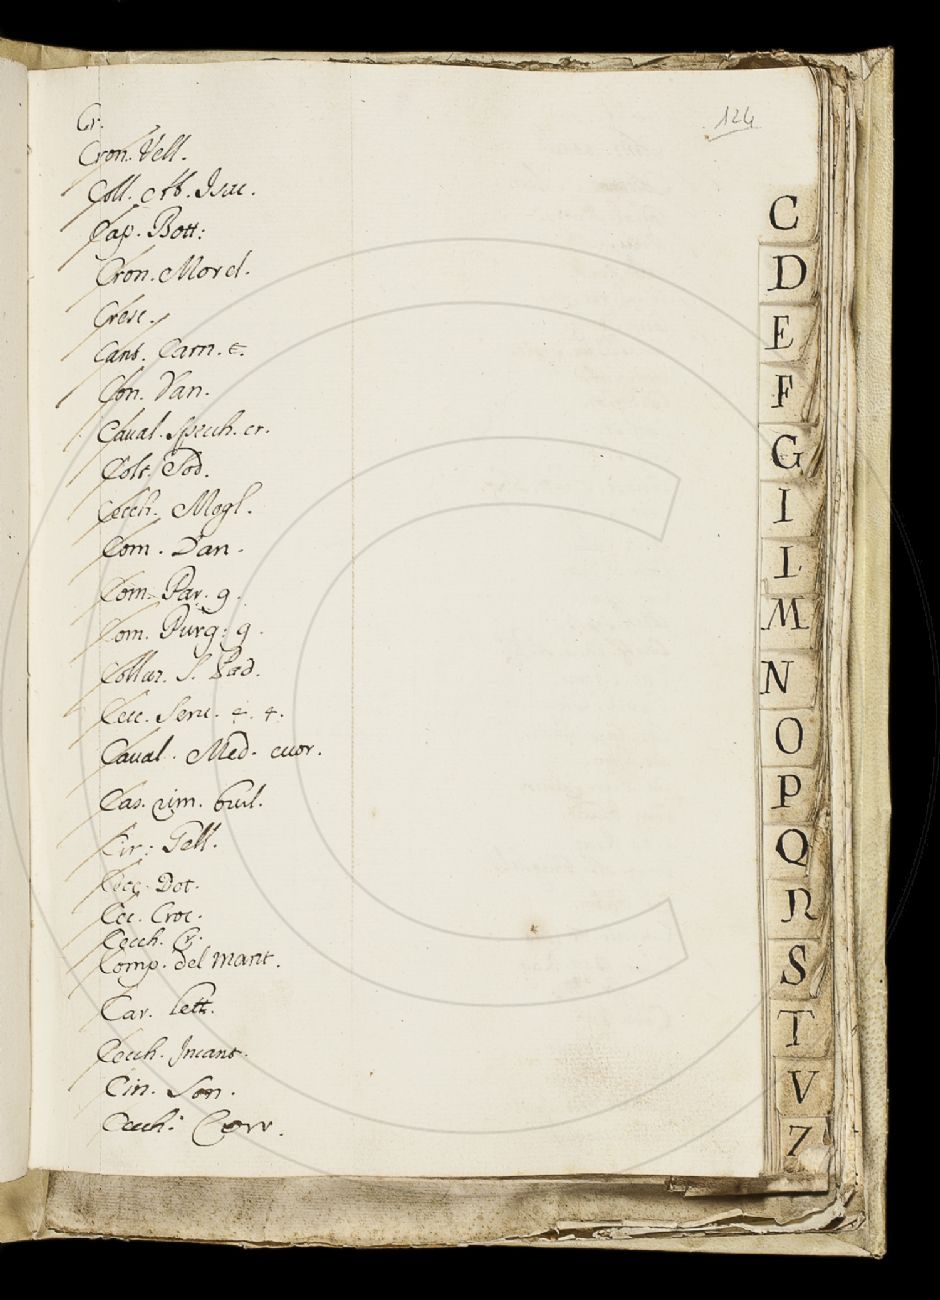 Cr.
124
Cron. Vell.
Coll. Ab. Isac.
Cap. Bott:
Cron. Morel.
Cresc.
Cant. Carn. c.
Con. Van.
Caval. Specch. cr.
Colt. Sod.
Cecch. Mogl.
Com. Dan.
Com. Par. g.
Com. Purg: g.
Collaz. S. Pad.
Cecc. Serv.
Caval. Med. cuor.
Cas. rim. burl.
Cir: Gell.
Cecc. Dot.
Cec. Croc.
Cecch. Cr.
Comp. del Mant.
Car. lett.
Cecch. Incant.
Cin. Son.
Cecch: Corr.
C
D
E
F
G
I
L
M
N
O
P
Q
R
S
T
V
Z